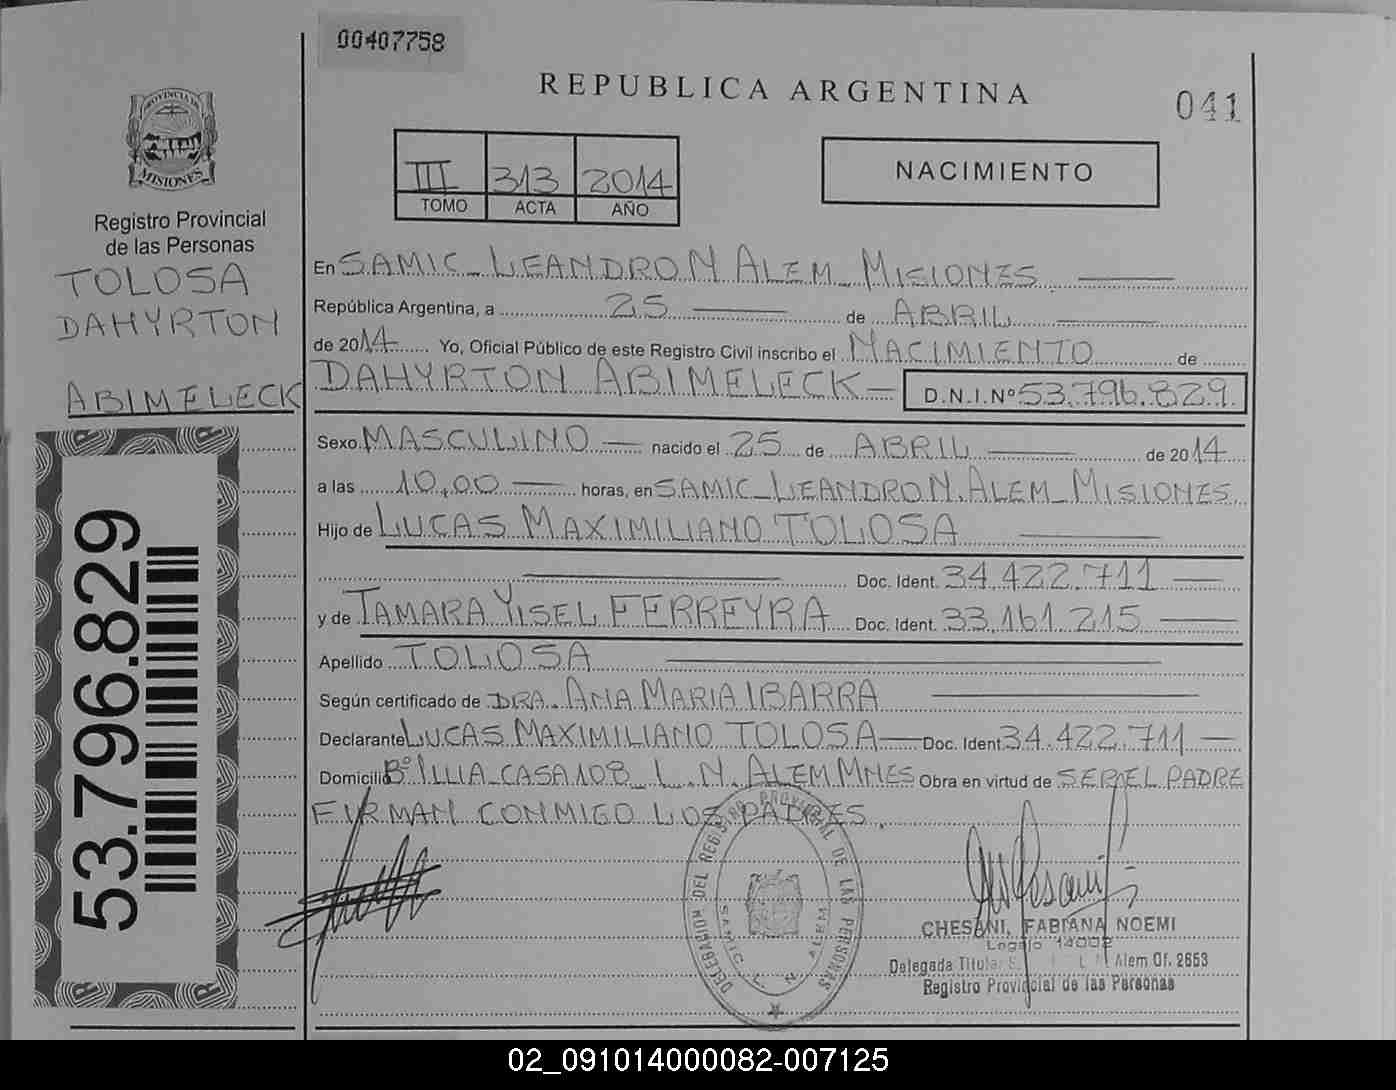 00407758
REPUBLICA ARGENTINA
041
PROVINCIA DE
MISIONES
Registro Provincial
de las Personas
TOLOSA
DAHYRTON
ABIMELECK
53.796.829
III 313 2014
TOMO ACTA AÑO
NACIMIENTO
En SAMIC - LEANDRO N ALEM - MISIONES
República Argentina, a 25 de ABRIL
de 2014 Yo, Oficial Público de este Registro Civil inscribo el NACIMIENTO de
DAHYRTON ABIMELECK — D.N.I.Nº 53.796.829
Sexo MASCULINO — nacido el 25 de ABRIL de 2014
a las 10,00 — horas, en SAMIC - LEANDRO N. ALEM - MISIONES
Hijo de LUCAS MAXIMILIANO TOLOSA
Doc. Ident. 34.422.711
y de TAMARA YISEL FERREYRA Doc. Ident. 33.161.215
Apellido TOLOSA
Según certificado de DRA. ANA MARIA IBARRA
Declarante LUCAS MAXIMILIANO TOLOSA — Doc. Ident. 34.422.711 —
Domicilio Bº ILLIA - CASA 108 L. N. ALEM MNES Obra en virtud de SER EL PADRE
FIRMAN CONMIGO LOS PADRES.
DELEGACION DEL REGISTRO PROVINCIAL DE LAS PERSONAS
SAMIC L. N. ALEM
CHESANI, FABIANA NOEMI
Legajo 14002
Delegada Titular Alem Of. 2653
Registro Provincial de las Personas
02_091014000082-007125